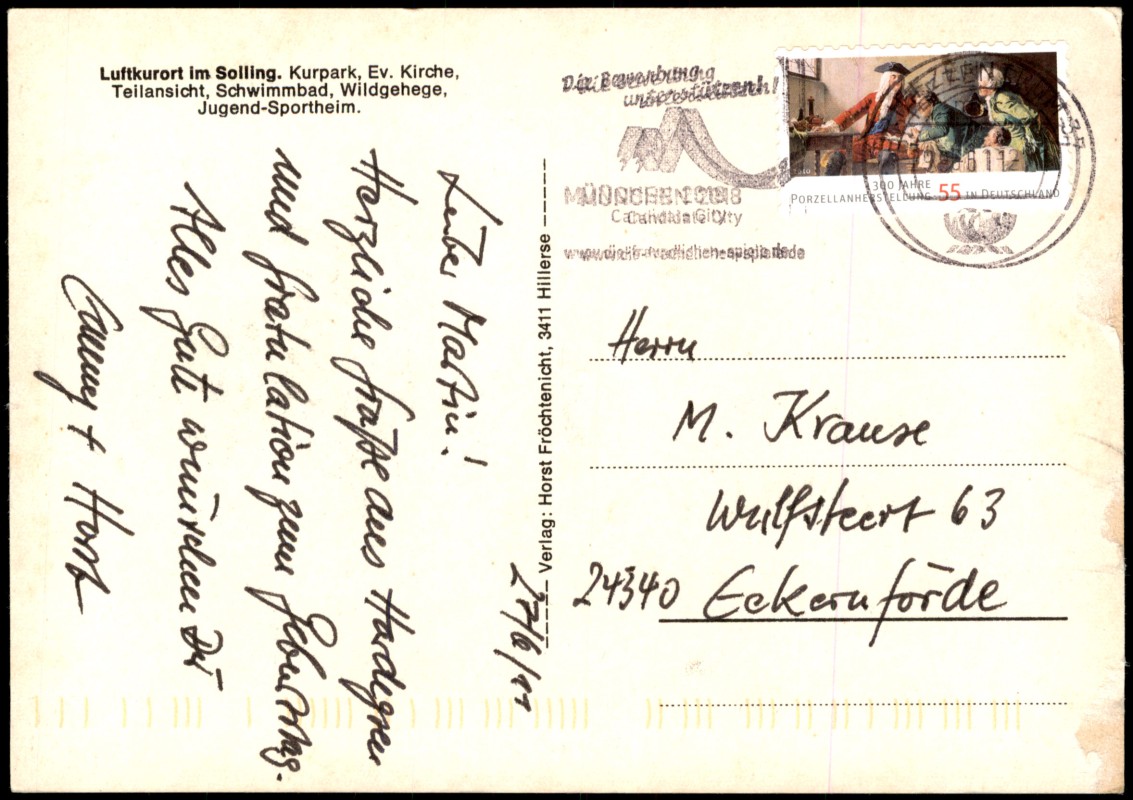 Luftkurort im Solling. Kurpark, Ev. Kirche,
Teilansicht, Schwimmbad, Wildgehege,
Jugend-Sportheim.
27/6/11
Lieber Martin!
Herzliche Grüße aus Hardegsen
und Gratulation zum Geburtstag.
Alles Gute wünschen Dir
+ Horst
Verlag: Horst Fröchtenicht, 3411 Hillerse
Die Bewerbung
unterstützen!
MÜNCHEN 2018
Candidate City
300 JAHRE
PORZELLANHERSTELLUNG 55 IN DEUTSCHLAND
2010
Herrn
M. Krause
Wulfsteert 63
24340 Eckernförde